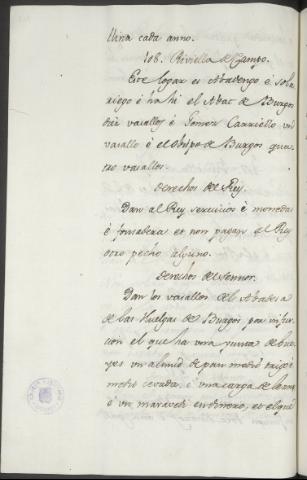 llina cada anno.
108. Riviella de Campo.
Este logar es Abadengo é sola
riego é ha hi el Abat de Burgos
dos vasallos é Gomez Carriello un
vasallo é el Obispo de Burgos qua
tro vasallos.
Derechos del Rey.
Dan al Rey servicios é moneda
é fonsadera et non pagan al Rey
otro pecho alguno.
Derechos del Sennor.
Dan los vasallos del Abadesa
de las Huelgas de Burgos por infur
cion el que ha una yunta de bue
yes un almud de pan medio trigo é
medio cevada, é una carga de lenna
é un maravedi en dinero, et el que